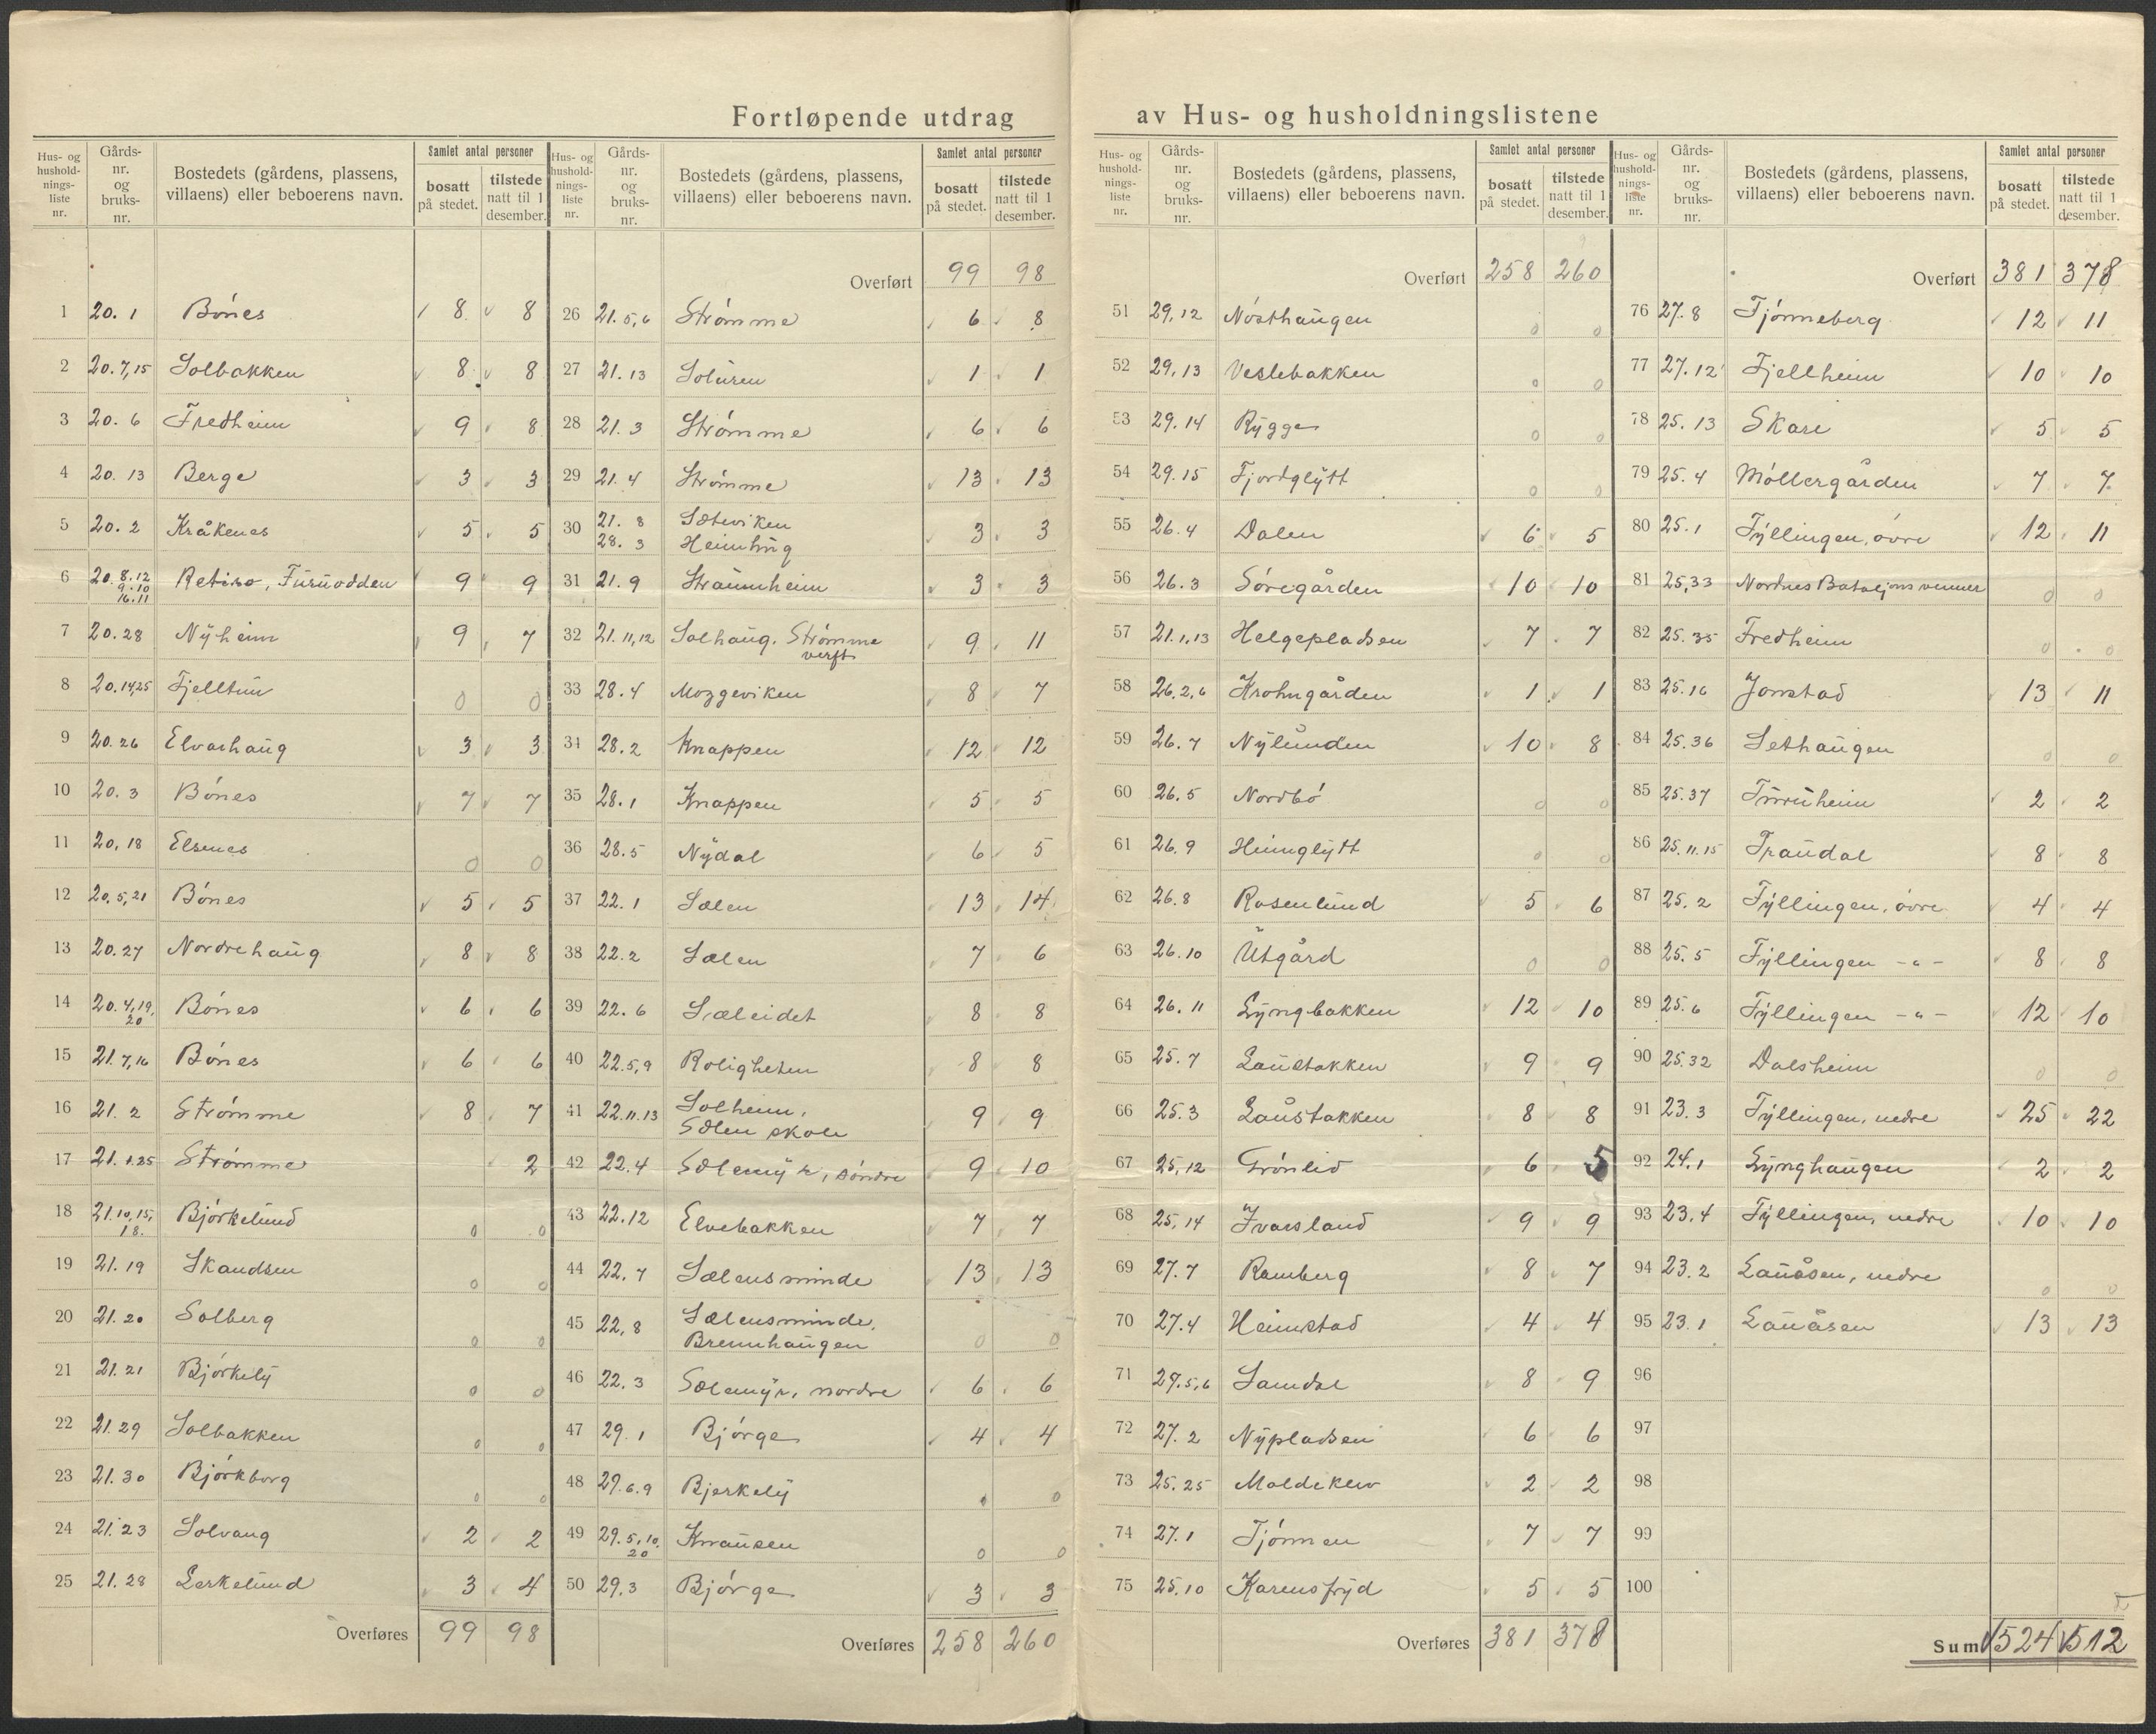 Fortløpende utdrag av Hus- og husholdningslistene
Hus- og husholdnings-liste nr. Gårds-nr. og bruks-nr. Bostedets (gårdens, plassens, villaens) eller beboerens navn. Samlet antal personer bosatt på stedet. tilstede natt til 1 desember.
1 20. 1 Bónes 8 8
2 20. 7,15 Solbakken 8 8
3 20. 6 Fredheim 9 8
4 20. 13 Berge 3 3
5 20. 2 Kråkenes 5 5
6 20. 8.12 9.10 16.11 Retiro, Furuodden 9 9
7 20.28 Nÿheim 9 7
8 20.14,25 Fjelltün 0 0
9 20.26 Elvarhaüg 3 3
10 20. 3 Bónes 7 7
11 20, 18 Elsenes 0 0
12 20, 5, 21 Bónes 5 5
13 20.27 Nordrehaüg 8 8
14 20. 4,19, 20 Bónes 6 6
15 21. 7,16 Bónes 6 6
16 21. 2 Strómme 8 7
17 21. 1.25 Strómme 2
18 21.10,15, 18. Bjórkelünd 0 0
19 21. 19 Skandsen 0 0
20 21. 20 Solberg 0 0
21 21. 21 Bjórkelÿ 0 0
22 21. 29 Solbakken 0 0
23 21. 30 Bjórkborg 0 0
24 21. 23 Solvang 2 2
25 21. 28 Lerkelünd 3 4
Overføres 99 98
Hus- og husholdnings-liste nr. Gårds-nr. og bruks-nr. Bostedets (gårdens, plassens, villaens) eller beboerens navn. Samlet antal personer bosatt på stedet. tilstede natt til 1 desember.
Overført 99 98
26 21. 5,6 Strómme 6 8
27 21. 13 Solüren 1 1
28 21. 3 Strómme 6 6
29 21. 4 Strómme 13 13
30 21. 8 Sæteviken
28. 3 Heimhüg 3 3
31 21. 9 Straümheim 3 3
32 21. 11,12 Solhaüg. Strómme verft 9 11
33 28. 4 8 7
34 28. 2 Knappen 12 12
35 28. 1 Knappen 5 5
36 28. 5 Nÿdal 6 5
37 22. 1 Sælen 13 14
38 22. 2 Sælen 7 6
39 22. 6 Sæleidet 8 8
40 22.5,9 Roligheten 8 8
41 22.11.13 Solheim,
Sælen skole 9 9
42 22.4 Sælemÿr, sóndre 9 10
43 22.12 Elvebakken 7 7
44 22. 7 Sælensminde 13 13
45 22, 8 Sælensminde,
Brennhaügen 0 0
46 22. 3 Sælemÿr, nordre 6 6
47 29. 1 Bjórge 4 4
48 29. 6.9 Bjerkelÿ 0 0
49 29. 5,10, 20 Knaüsen 0 0
50 29.3 Bjórge 3 3
Overføres 258 260
Hus- og husholdnings-liste nr. Gårds-nr. og bruks-nr. Bostedets (gårdens, plassens, villaens) eller beboerens navn. Samlet antal personer bosatt på stedet. tilstede natt til 1 desember.
Overført 258 260
51 29, 12 Nósthaügen 0 0
52 29, 13 Veslebakken 0 0
53 29. 14 Rÿgge 0 0
54 29. 15 Fjordglÿtt 0 0
55 26. 4 Dalen 6 5
56 26. 3 Sóregården 10 10
57 21. 1,13 Helgepladsen 7 7
58 26. 2,6 Krohngården 1 1
59 26. 7 Nÿlünden 10 8
60 26. 5 Nordbó 0 0
61 26. 9 Heimglÿtt 0 0
62 26. 8 Rosenlünd 5 6
63 26. 10 Ütgård 0 0
64 26. 11 Lÿngbakken 12 10
65 25. 7 Laüstakken 9 9
66 25. 3 Laüstakken 8 8
67 25, 12 Grónlid 6 5
68 25, 14 Ivarsland 9 9
69 27. 7 Ramberg 8 7
70 27.4 Heimstad 4 4
71 27. 5,6 Samdal 8 9
72 27. 2 Nÿpladsen 6 6
73 25. 25 Moldeklev 2 2
74 27. 1 Tjónnen 7 7
75 25. 10 Karensfrÿd 5 5
Overføres 381 378
Hus- og husholdnings-liste nr. Gårds-nr. og bruks-nr. Bostedets (gårdens, plassens, villaens) eller beboerens navn. Samlet antal personer bosatt på stedet. tilstede natt til 1 desember.
Overført 381 378
76 27. 8 Tjónneberg 12 11
77 27. 12 Fjellheim 10 10
78 25. 13 Skare 5 5
79 25. 4 Móllergården 7 7
80 25. 1 Fÿllingen, óvre 12 11
81 25,33 Nordnes Bataljons venner 0 0
82 25. 35 Fredheim 0 0
83 25.16 Jonstad 13 11
84 25.36 Lethaügen 0 0
85 25.37 Fürüheim 2 2
86 25.11.15 Traüdal 8 8
87 25. 2 Fÿllingen, óvre 4 4
88 25. 5 Fÿllingen -"- 8 8
89 25. 6 Fÿllingen -"- 12 10
90 25. 32 Dalsheim 0 0
91 23. 3 Fÿllingen, nedre 25 22
92 24. 1 Lÿnghaügen 2 2
93 23. 4 Fÿllingen, nedre 10 10
94 23. 2 Laüåsen, nedre 0 0
95 23. 1 Laüåsen 13 13
96
97
98
99
100
Sum 524 512